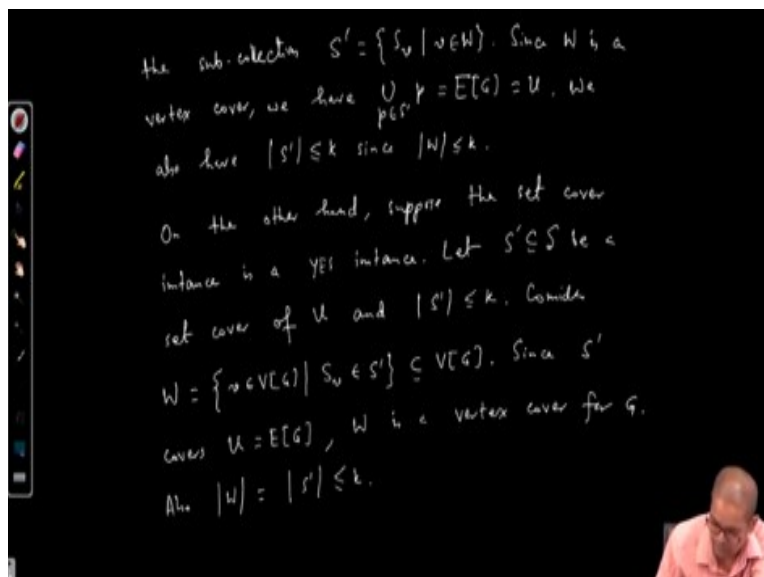 the sub-collection S' = {S_v | v ∈ W}. Since W is a
vertex cover, we have ∪_{p∈S'} p = E[G] = U. We
also have |S'| ≤ k since |W| ≤ k.
On the other hand, suppose the set cover
instance is a YES instance. Let S' ⊆ S be a
set cover of U and |S'| ≤ k. Consider
W = {v ∈ V[G] | S_v ∈ S'} ⊆ V[G]. Since S'
covers U = E[G], W is a vertex cover for G.
Also |W| = |S'| ≤ k.